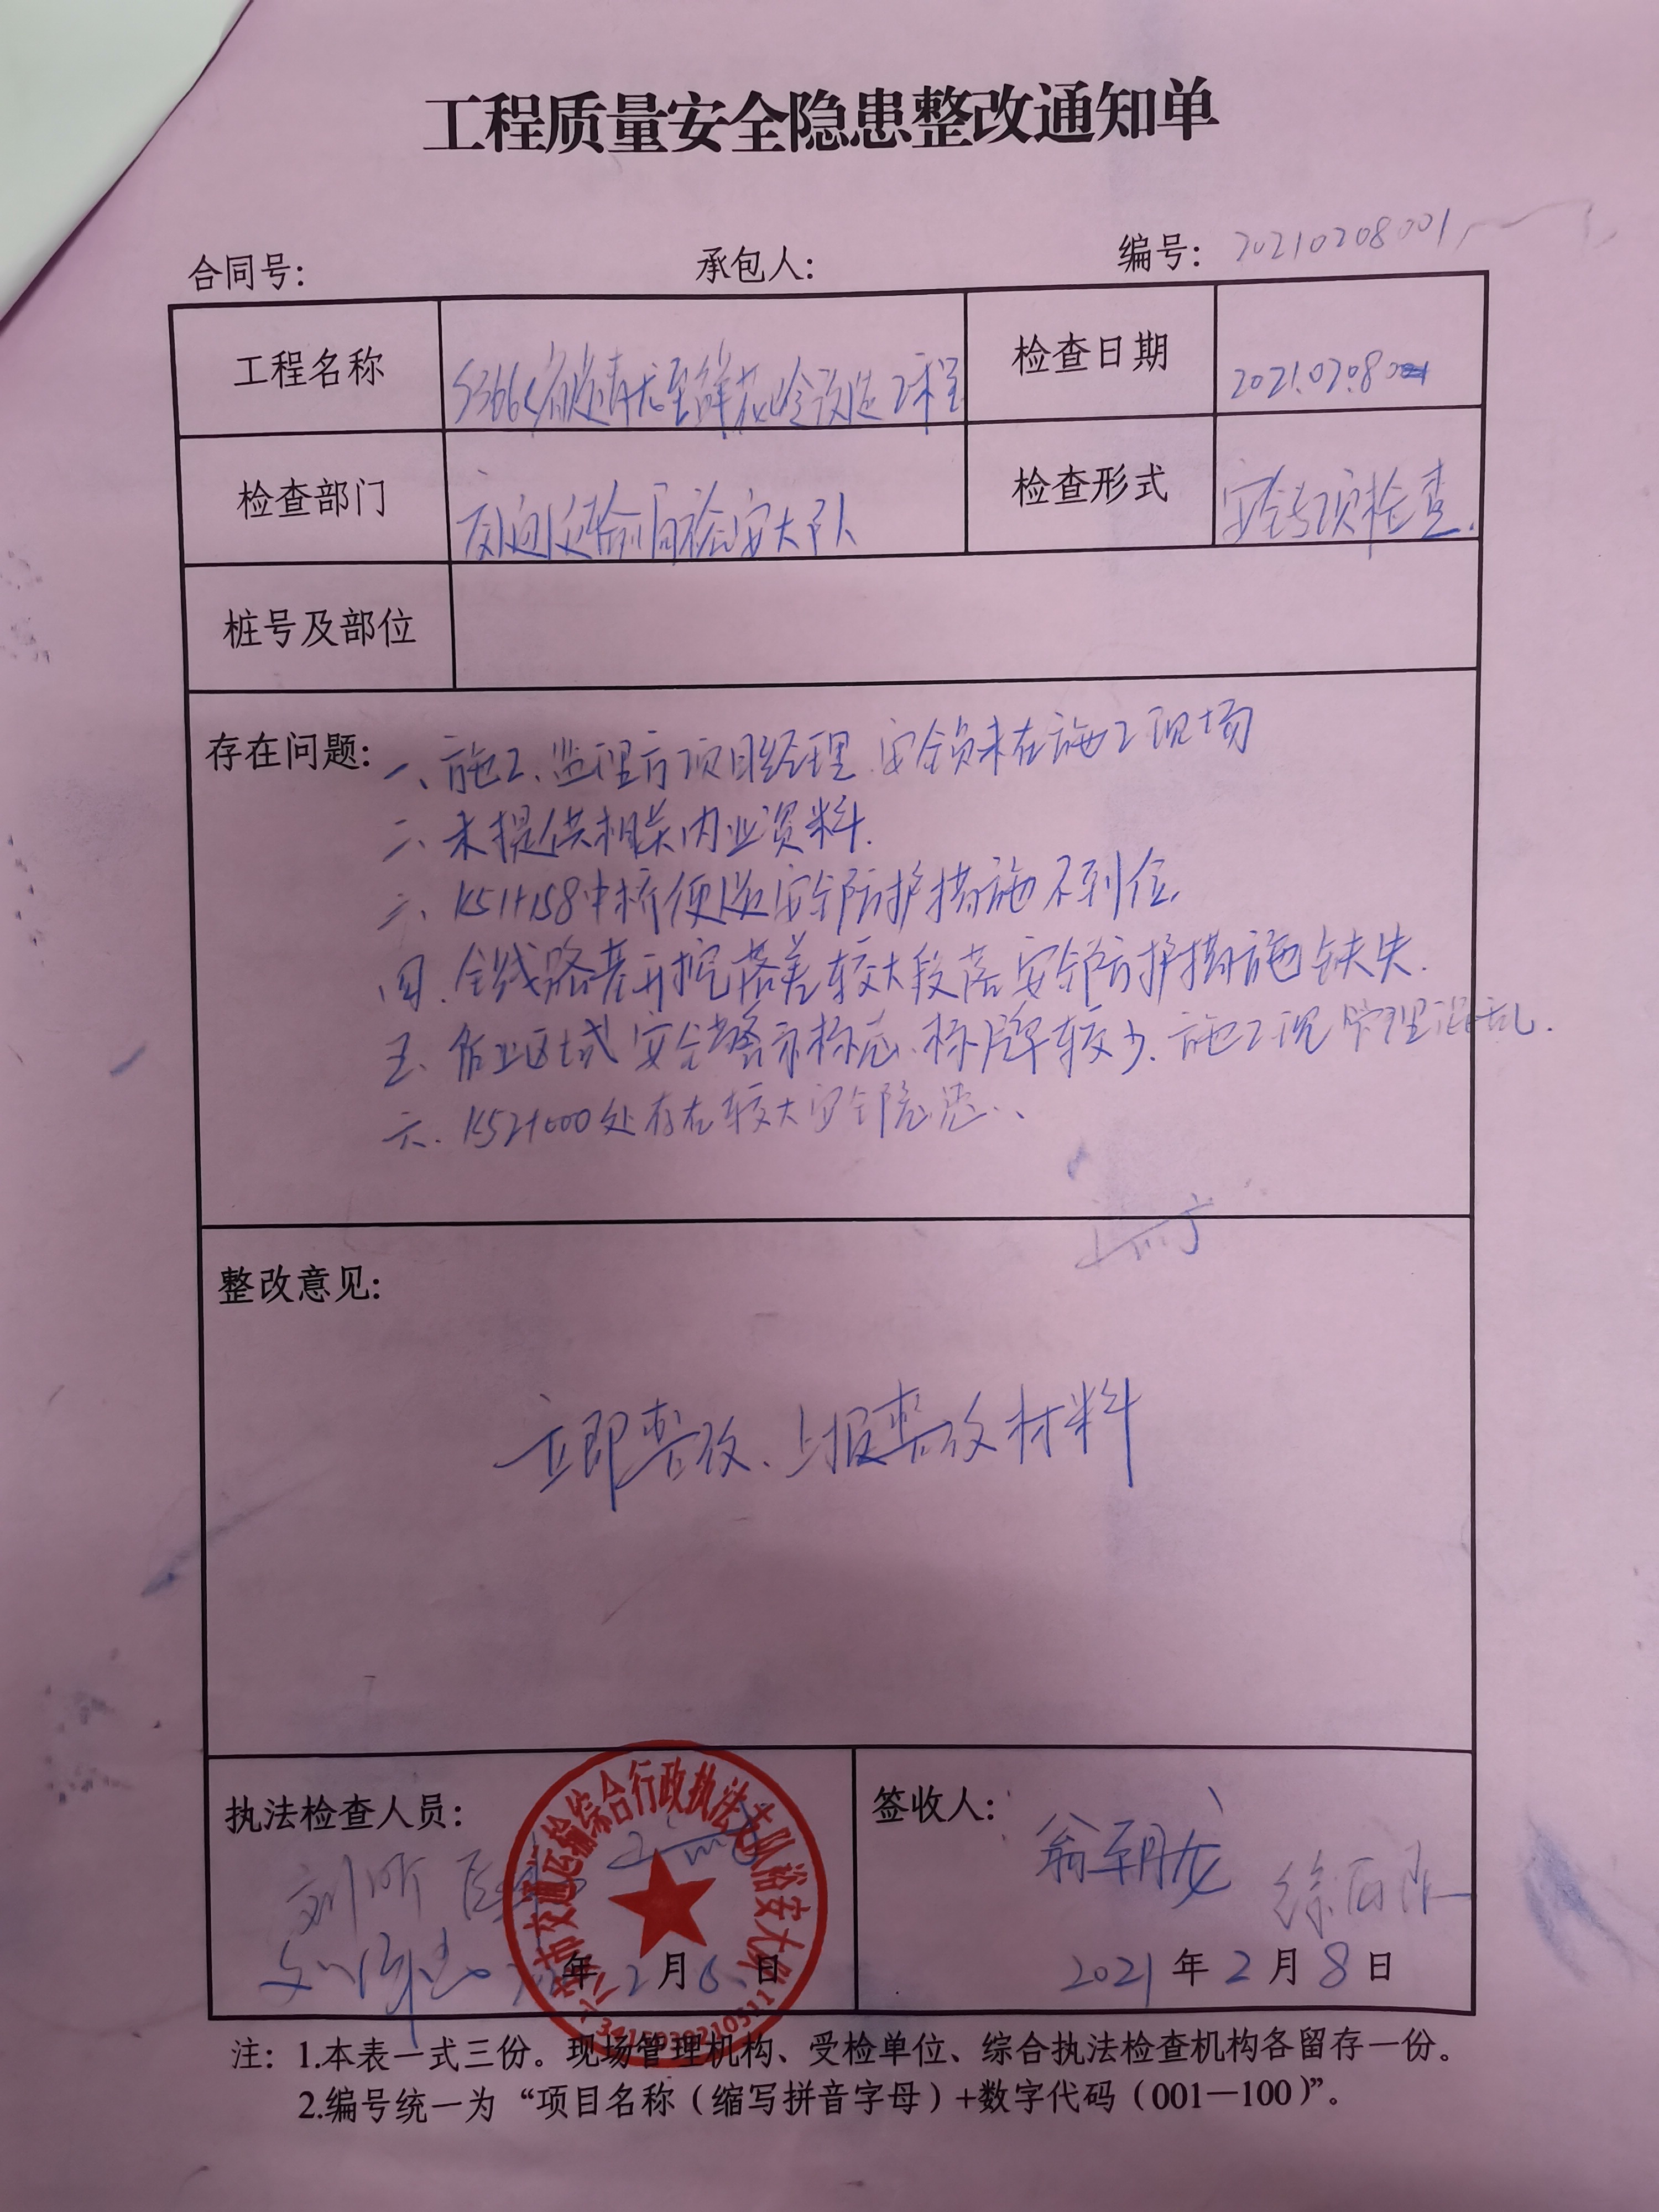 工程质量安全隐患整改通知单
合同号: 承包人: 编号: 20210208001
工程名称 S366 青龙至鲜花岭改造工程 检查日期 2021.0208
检查部门 交通运输局裕安大队 检查形式 安全专项检查.
桩号及部位
存在问题: 一、施工、监理方项目经理、安全员未在施工现场
二、未提供相关内业资料.
三、K51+158中桥便道安全防护措施不到位.
四、全线路基开挖落差较大段落安全防护措施缺失.
五、作业区域安全警示标志、标牌较少、施工现管理混乱.
六、K52+000处存在较大安全隐患、
整改意见:
立即整改、上报整改材料
执法检查人员: 签收人:
刘昕 翁朝龙 徐
年2月8日 2021年2月8日
六安市交通运输综合行政执法支队裕安大队
注: 1.本表一式三份。现场管理机构、受检单位、综合执法检查机构各留存一份。
2.编号统一为“项目名称(缩写拼音字母)+数字代码(001—100)”。